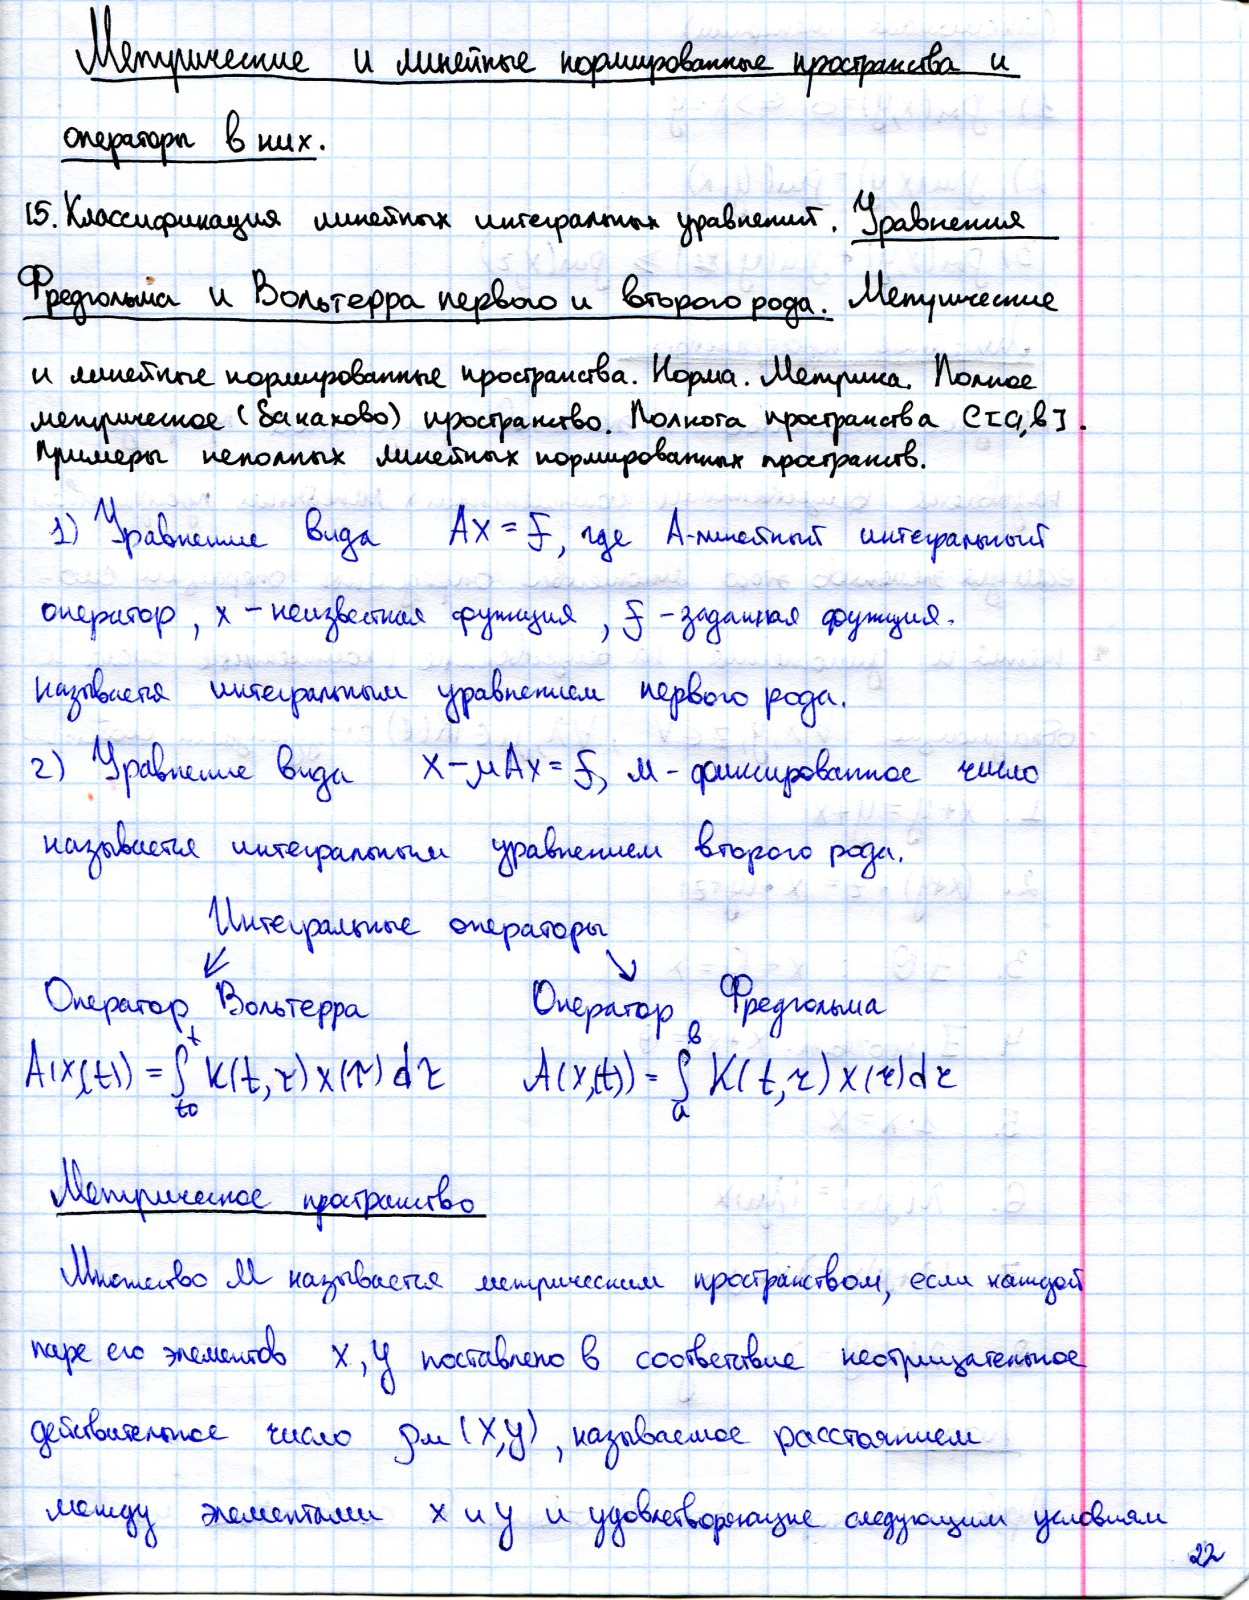 Метрические и линейные нормированные пространства и
операторы в них.
15. Классификация линейных интегральных уравнений. Уравнения
Фредгольма и Вольтерра первого и второго рода. Метрические
и линейные нормированные пространства. Норма. Метрика. Полное
метрическое (банахово) пространство. Полнота пространства C[a,b].
Примеры неполных линейных нормированных пространств.
1) Уравнение вида Ax = f, где A-линейный интегральный
оператор, x - неизвестная функция, f - заданная функция.
называется интегральным уравнением первого рода.
2) Уравнение вида x-μAx=f, μ - фиксированное число
называется интегральным уравнением второго рода.
Интегральные операторы
↙ ↘
Оператор Вольтерра Оператор Фредгольма
A(x,(t)) = ∫_{t0}^{t} K(t,τ)x(τ)dτ A(x,(t)) = ∫_{a}^{b} K(t,τ)x(τ)dτ
Метрическое пространство
Множество M называется метрическим пространством, если каждой
паре его элементов x,y поставлено в соответствие неотрицательное
действительное число ρм(x,y), называемое расстоянием
между элементами x и y и удовлетворяющие следующим условиям
22